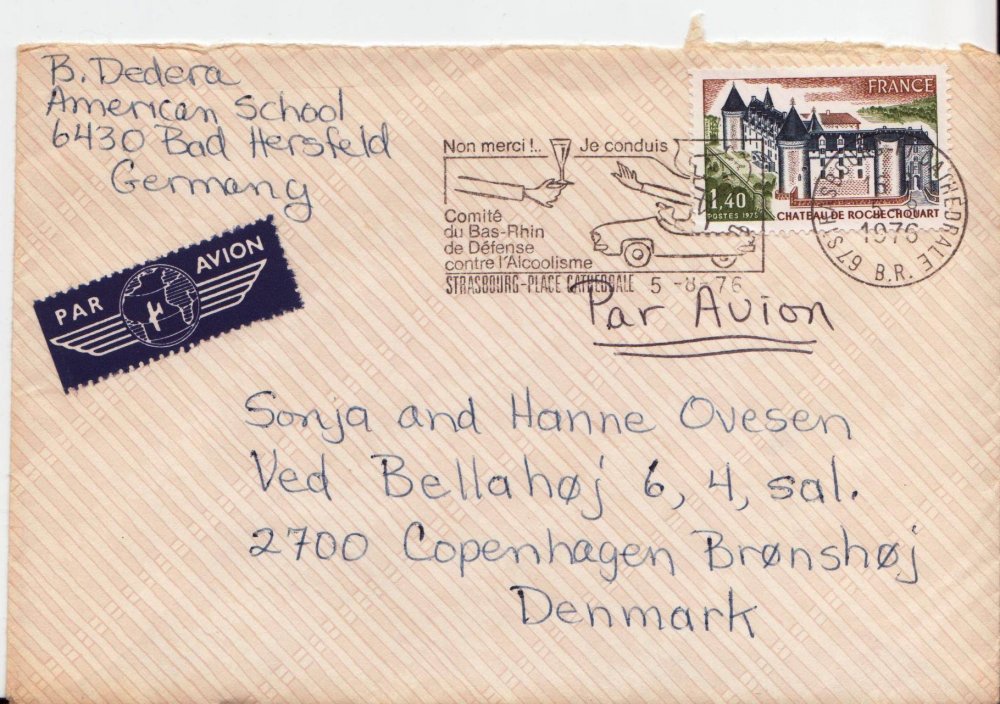 B. Dedera
American School
6430 Bad Hersfeld
Germany
PAR AVION
Non merci!.. Je conduis
Comité
du Bas-Rhin
de Défense
contre l'Alcoolisme
STRASBOURG-PLACE CATHEDRALE 5 -8. 76
FRANCE
1,40
POSTES 1975
CHATEAU DE ROCHECHOUART
67 STRASBOURG CATHEDRALE
1976
B.R.
Par Avion
Sonja and Hanne Ovesen
Ved Bellahøj 6, 4, sal.
2700 Copenhagen Brønshøj
Denmark